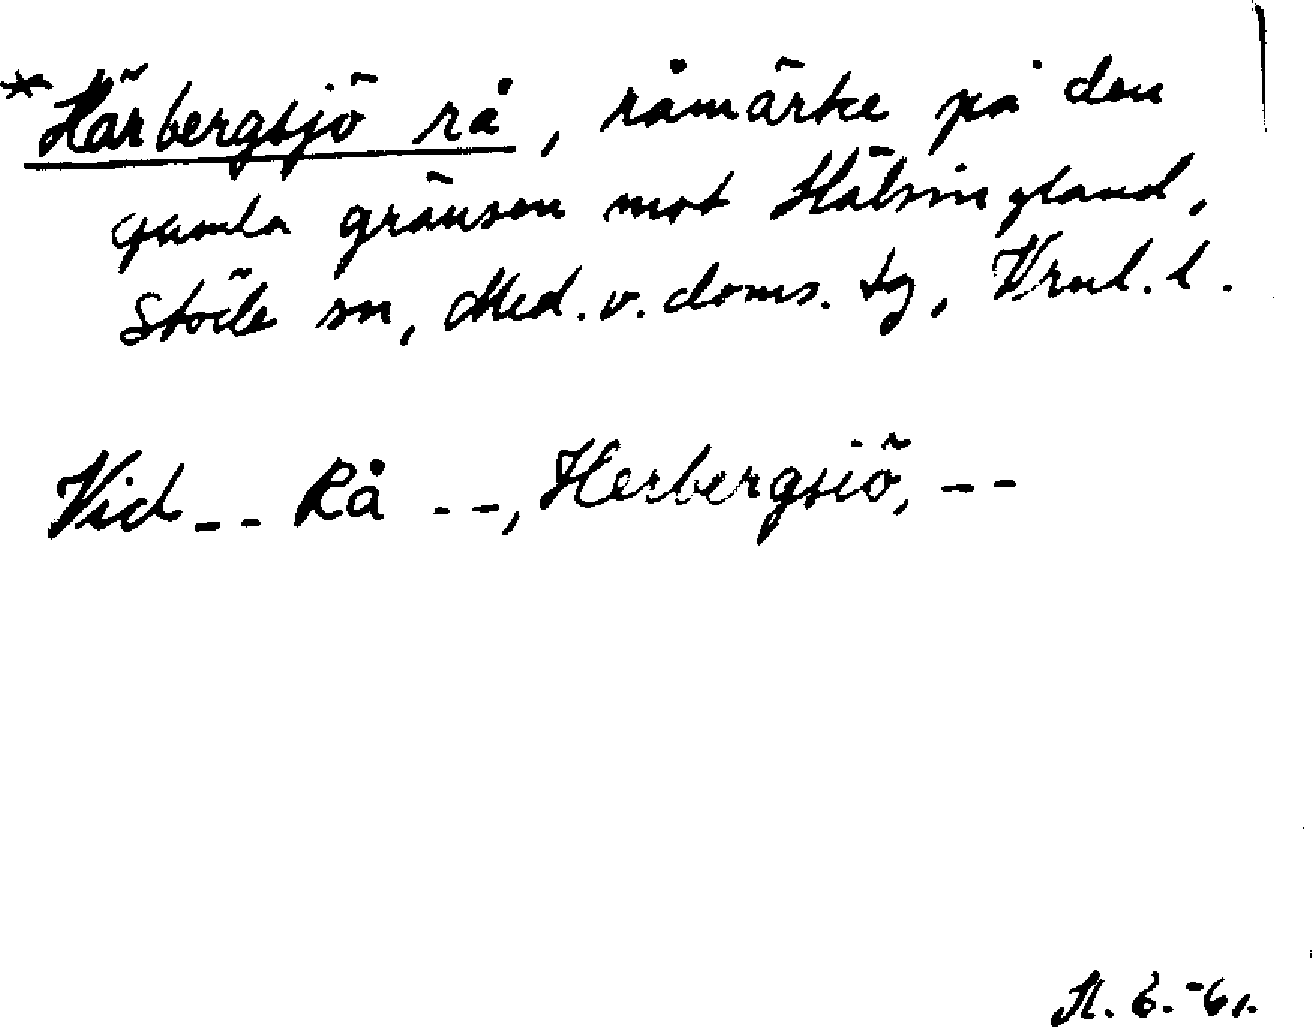 *Härbergsjö rå, råmärke på den
gamla gränsen mot Hälsingland,
Stöde sn, Med. v. doms. tg, Vrnl. l.
Vid -- Rå --, Herbergsiö, --